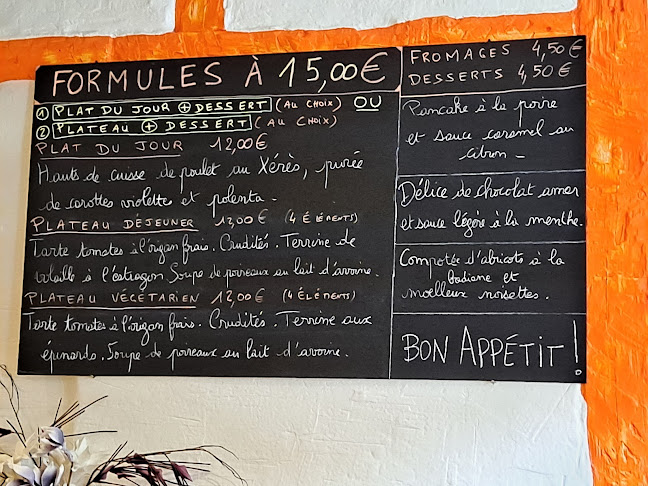 FORMULES À 15,00€
① PLAT DU JOUR ⊕ DESSERT (AU CHOIX) OU
② PLATEAU ⊕ DESSERT (AU CHOIX)
PLAT DU JOUR 12,00€
Hauts de cuisse de poulet au Xérès, purée
de carottes violettes et polenta.
PLATEAU DÉJEUNER 12,00€ (4 ÉLÉMENTS)
Tarte tomates à l'origan frais. Crudités. Terrine de
volaille à l'estragon. Soupe de poireaux au lait d'avoine.
PLATEAU VÉGÉTARIEN 12,00€ (4 ÉLÉMENTS)
Tarte tomates à l'origan frais. Crudités. Terrine aux
épinards. Soupe de poireaux au lait d'avoine.
FROMAGES 4,50€
DESSERTS 4,50€
Pancake à la poire
et sauce caramel au
citron -
Délice de chocolat amer
et sauce légère à la menthe.
Compotée d'abricots à la
badiane et
moelleux noisettes.
BON APPÉTIT !